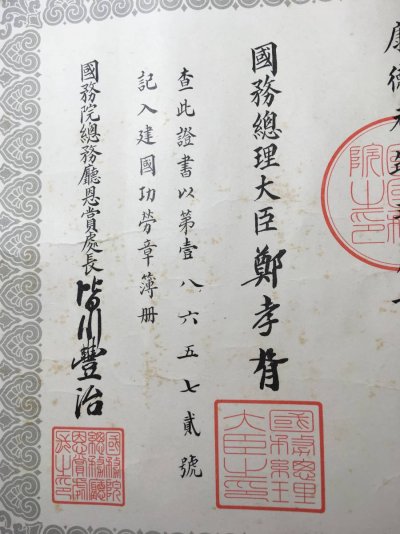 康德
國務總理大臣 鄭孝胥
國務總理大臣之印
查此證書以第壹八六五七貳號
記入建國功勞章簿冊
國務院總務廳恩賞處長 皆川豐治
國務院總務廳恩賞處長之印